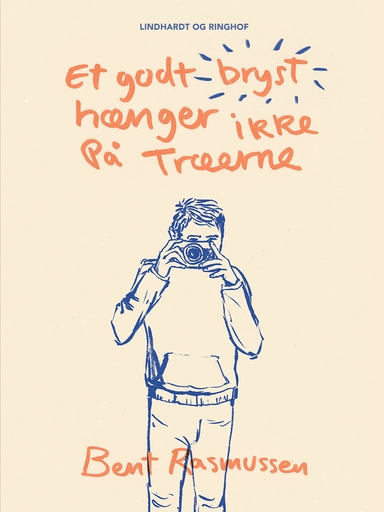 LINDHARDT OG RINGHOF
Et godt bryst
hænger ikke
på Træerne
Bent Rasmussen